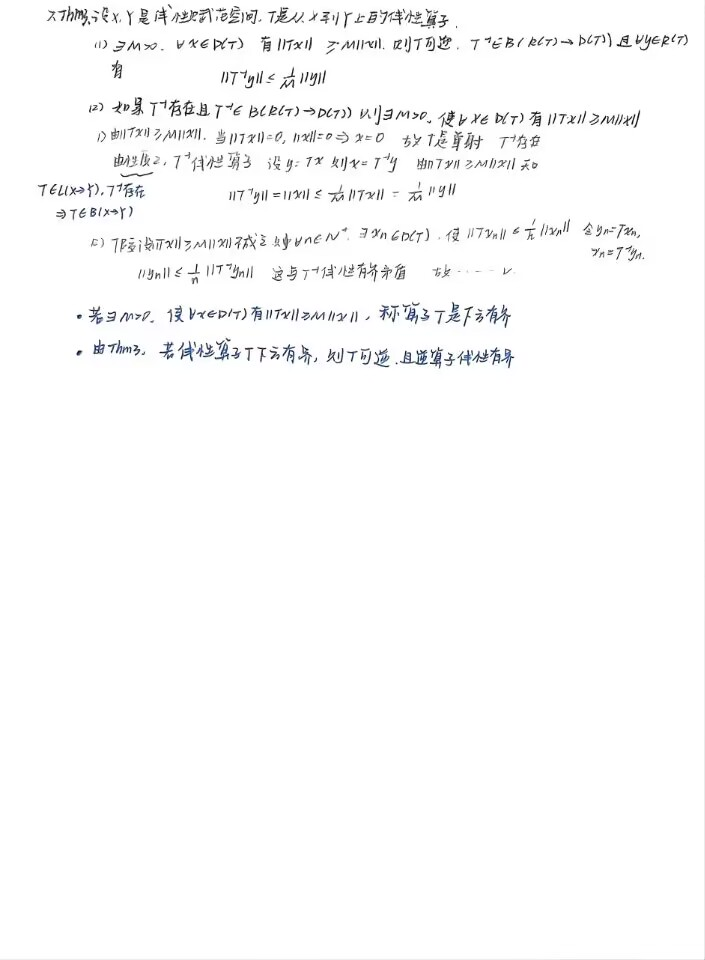 Thm3. 设X,Y是线性赋范空间,T是从X到Y上的线性算子.
(1) ∃M>0, ∀x∈D(T) 有||Tx|| ≥M||x||, 则T可逆, T⁻¹∈B(R(T)→D(T))且∀y∈R(T)
有 ||T⁻¹y|| ≤ 1/M ||y||
(2) 如果T⁻¹存在且T⁻¹∈B(R(T)→D(T)) 则∃M>0, 使∀x∈D(T)有||Tx||≥M||x||
1) 由||Tx||≥M||x||, 当||Tx||=0, ||x||=0⇒x=0 故T是单射 T⁻¹存在
由性质2, T⁻¹线性算子 设y=Tx 则x=T⁻¹y 由||Tx||≥M||x||知
T∈L(X→Y), T⁻¹存在
⇒T∈B(X→Y)
||T⁻¹y||=||x|| ≤ 1/M ||Tx|| = 1/M ||y||
2) 假设||Tx||≥M||x||不成立 则∀n∈N⁺, ∃xn∈D(T), 使||Txn|| ≤ 1/n ||xn|| 令yn=Txn,
xn=T⁻¹yn.
||yn|| ≤ 1/n ||T⁻¹yn|| 这与T⁻¹线性有界矛盾 故······√
• 若∃M>0, 使∀x∈D(T)有||Tx||≥M||x||, 称算子T是下方有界
• 由Thm3, 若线性算子T下方有界, 则T可逆,且逆算子线性有界